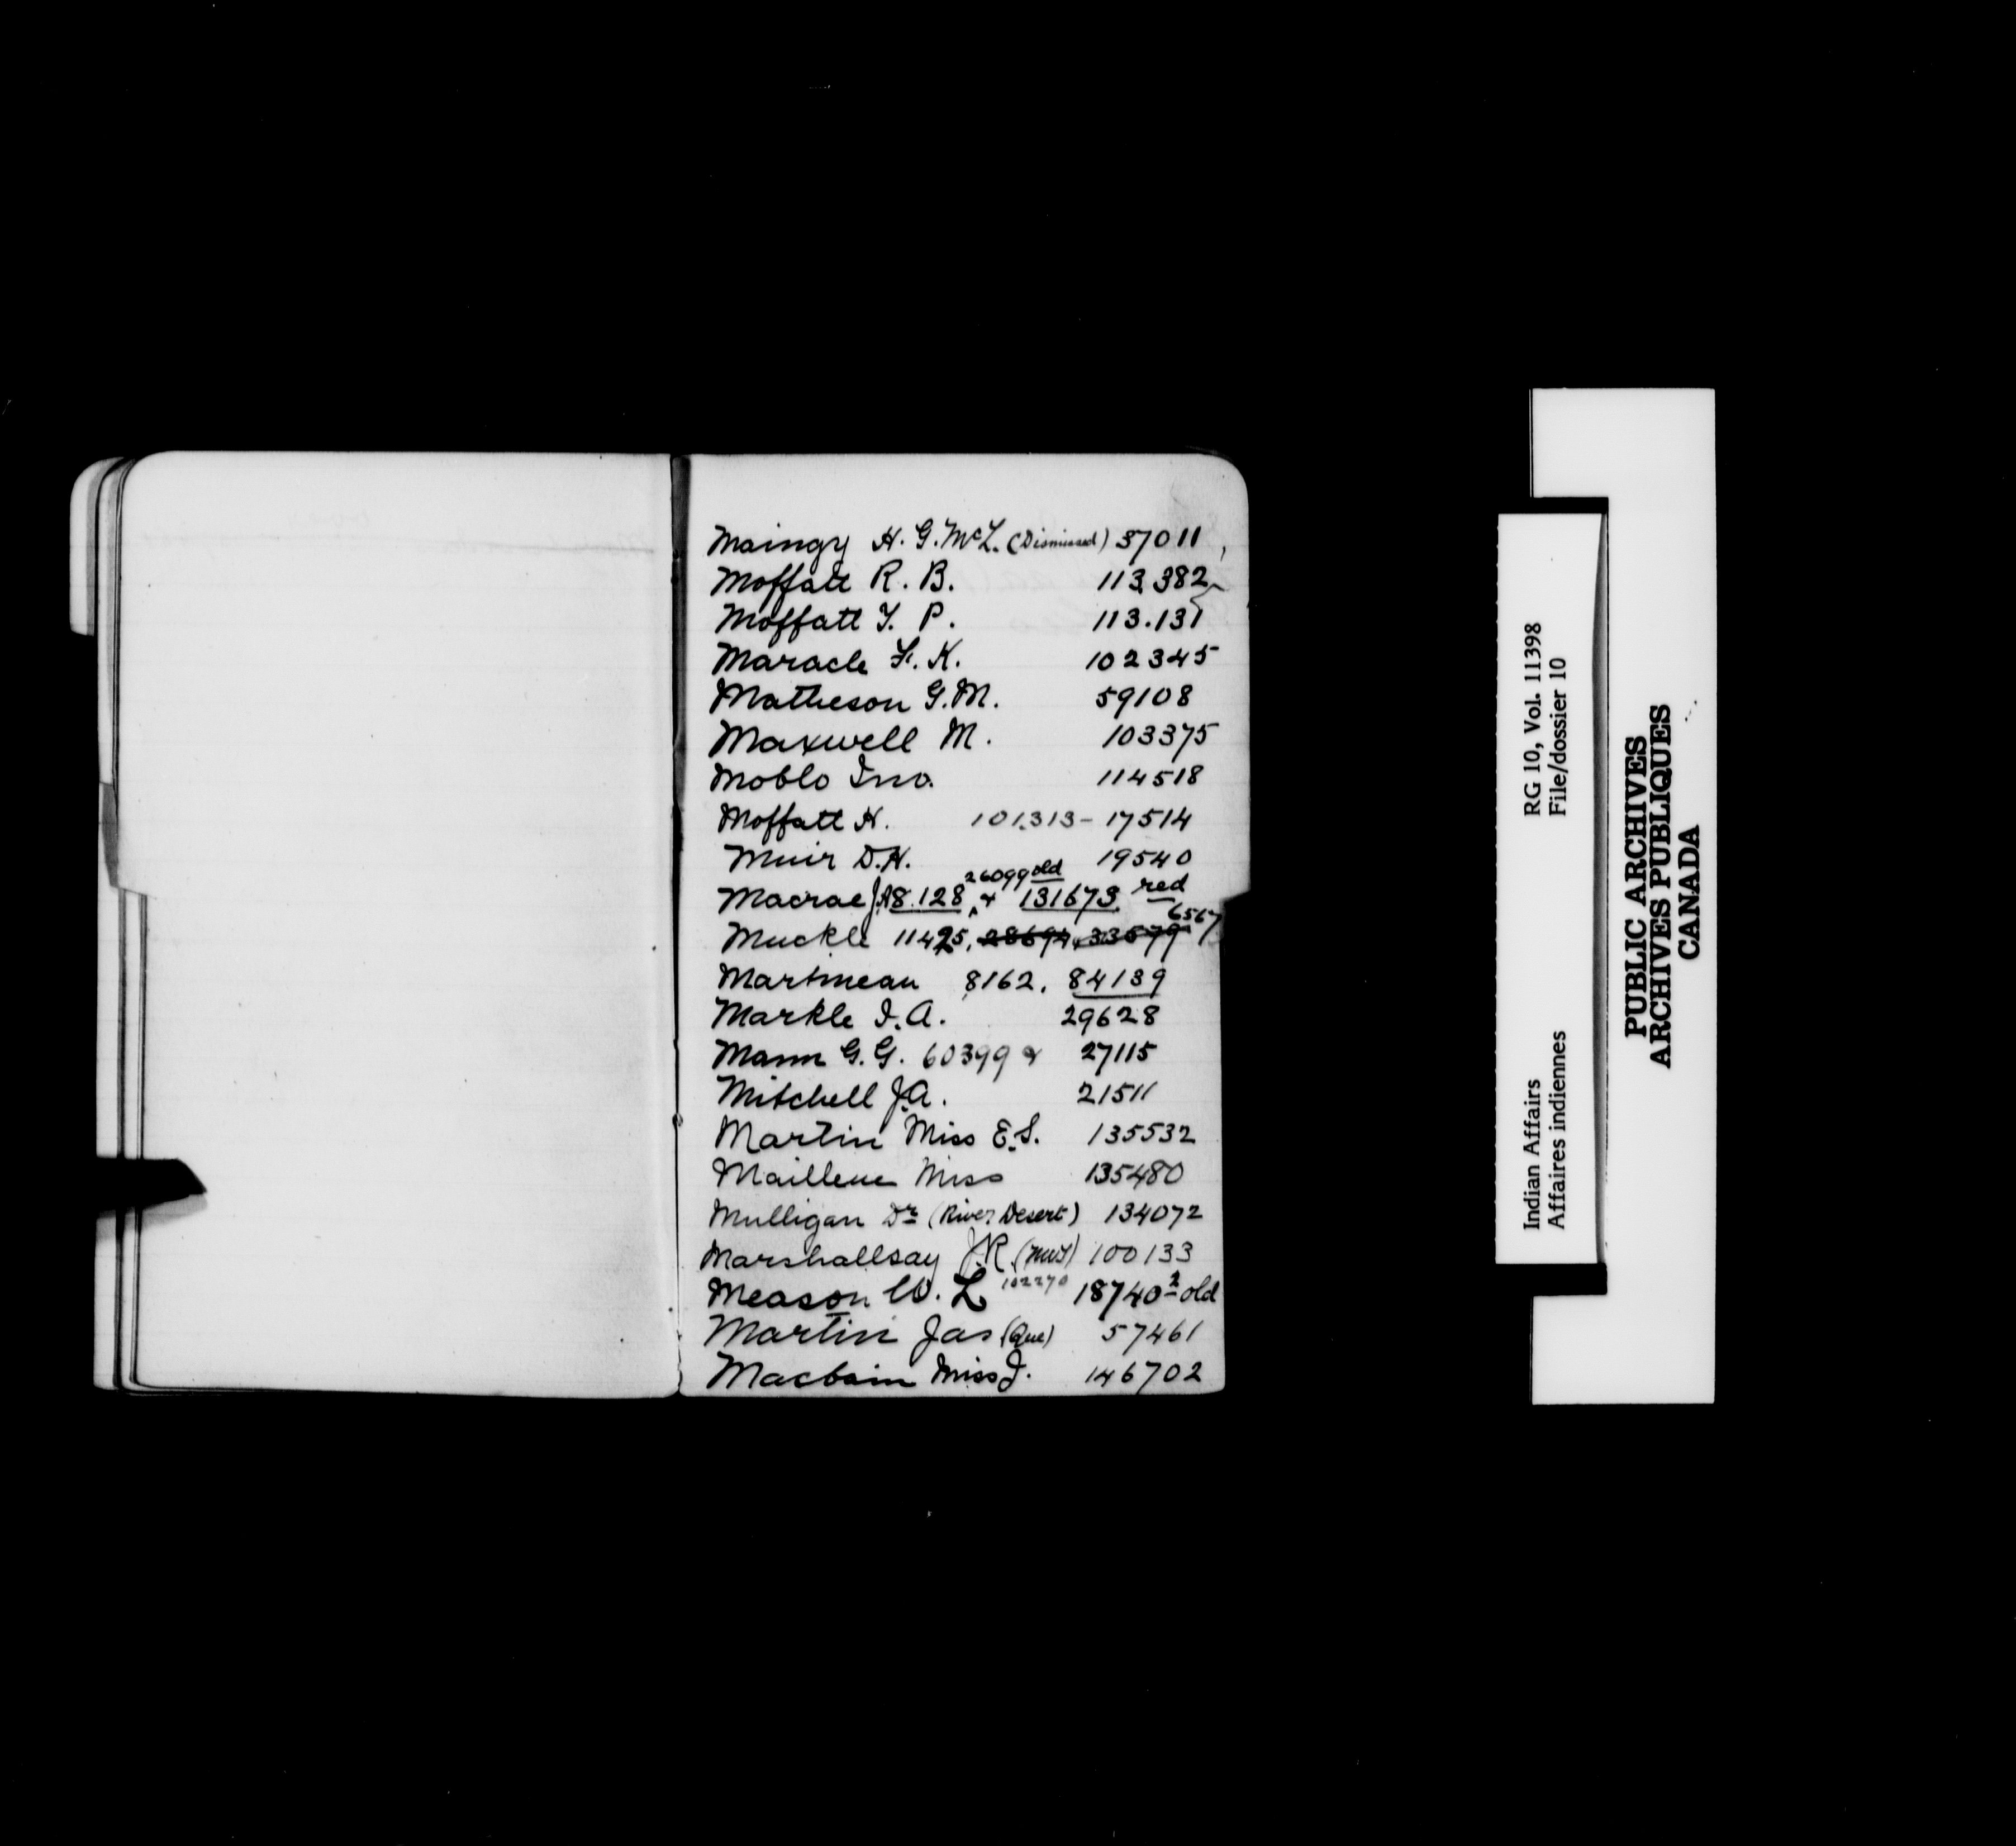 Maingy H. G. McL. (Dismissed) 37011
Moffatt R. B. 113.382
Moffatt T. P. 113.131
Maracle F. K. 102345
Matheson G. M. 59108
Maxwell M. 103375
Moblo Jno. 114518
Moffatt H. 101.313 - 17514
Muir D. H. 19540
26099 old
Macrae J.A 8.128 & 131673 red
6567
Muckle 11425, 28694, 33579
Martineau 8162, 84139
Markle J. A. 29628
Mann G. G. 60399 & 27115
Mitchell J. A. 21511
Martin Miss E. S. 135532
Mailleue Miss 135480
Mulligan Dr (River Desert) 134072
Marshallsay J. R. (NWT) 100133
Meason W. L 102270 18740-2 old
Martin Jas (Que) 57461
Macbain Miss J. 146702
Indian Affairs RG 10, Vol. 11398
Affaires indiennes File/dossier 10
PUBLIC ARCHIVES
ARCHIVES PUBLIQUES
CANADA